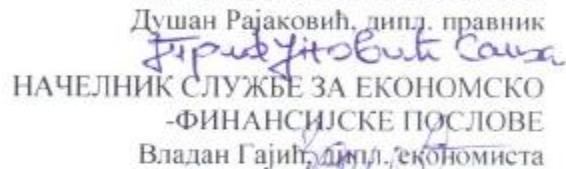 Душан Рајаковић, дипл. правник
НАЧЕЛНИК СЛУЖБЕ ЗА ЕКОНОМСКО
-ФИНАНСИЈСКЕ ПОСЛОВЕ
Владан Гајић, дипл. економиста